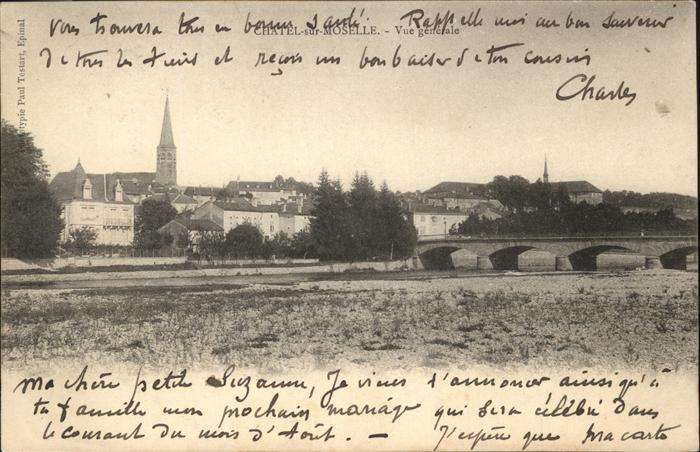 vous trouvera tous en bonne santé. Rappelle moi au bon souvenir
CHATEL-sur-MOSELLE. - Vue générale
de tous les tiens et reçois un bon baiser de ton cousin
Charles
Phototypie Paul Testart, Epinal
Ma chère petite Suzanne, Je viens t'annoncer ainsi qu'à
ta famille mon prochain mariage qui sera célébré dans
le courant du mois d'Août. — J'espère que ma carte